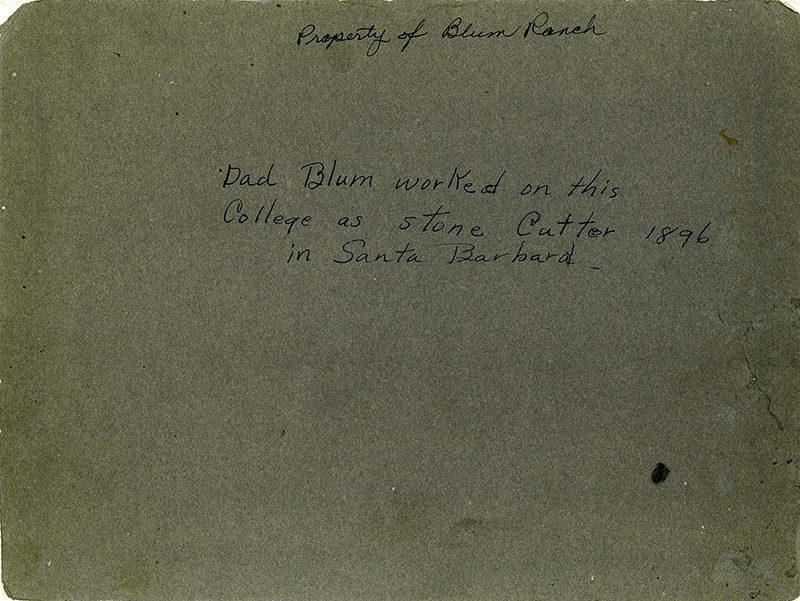 Property of Blum Ranch
Dad Blum worked on this
College as stone Cutter 1896
in Santa Barbara